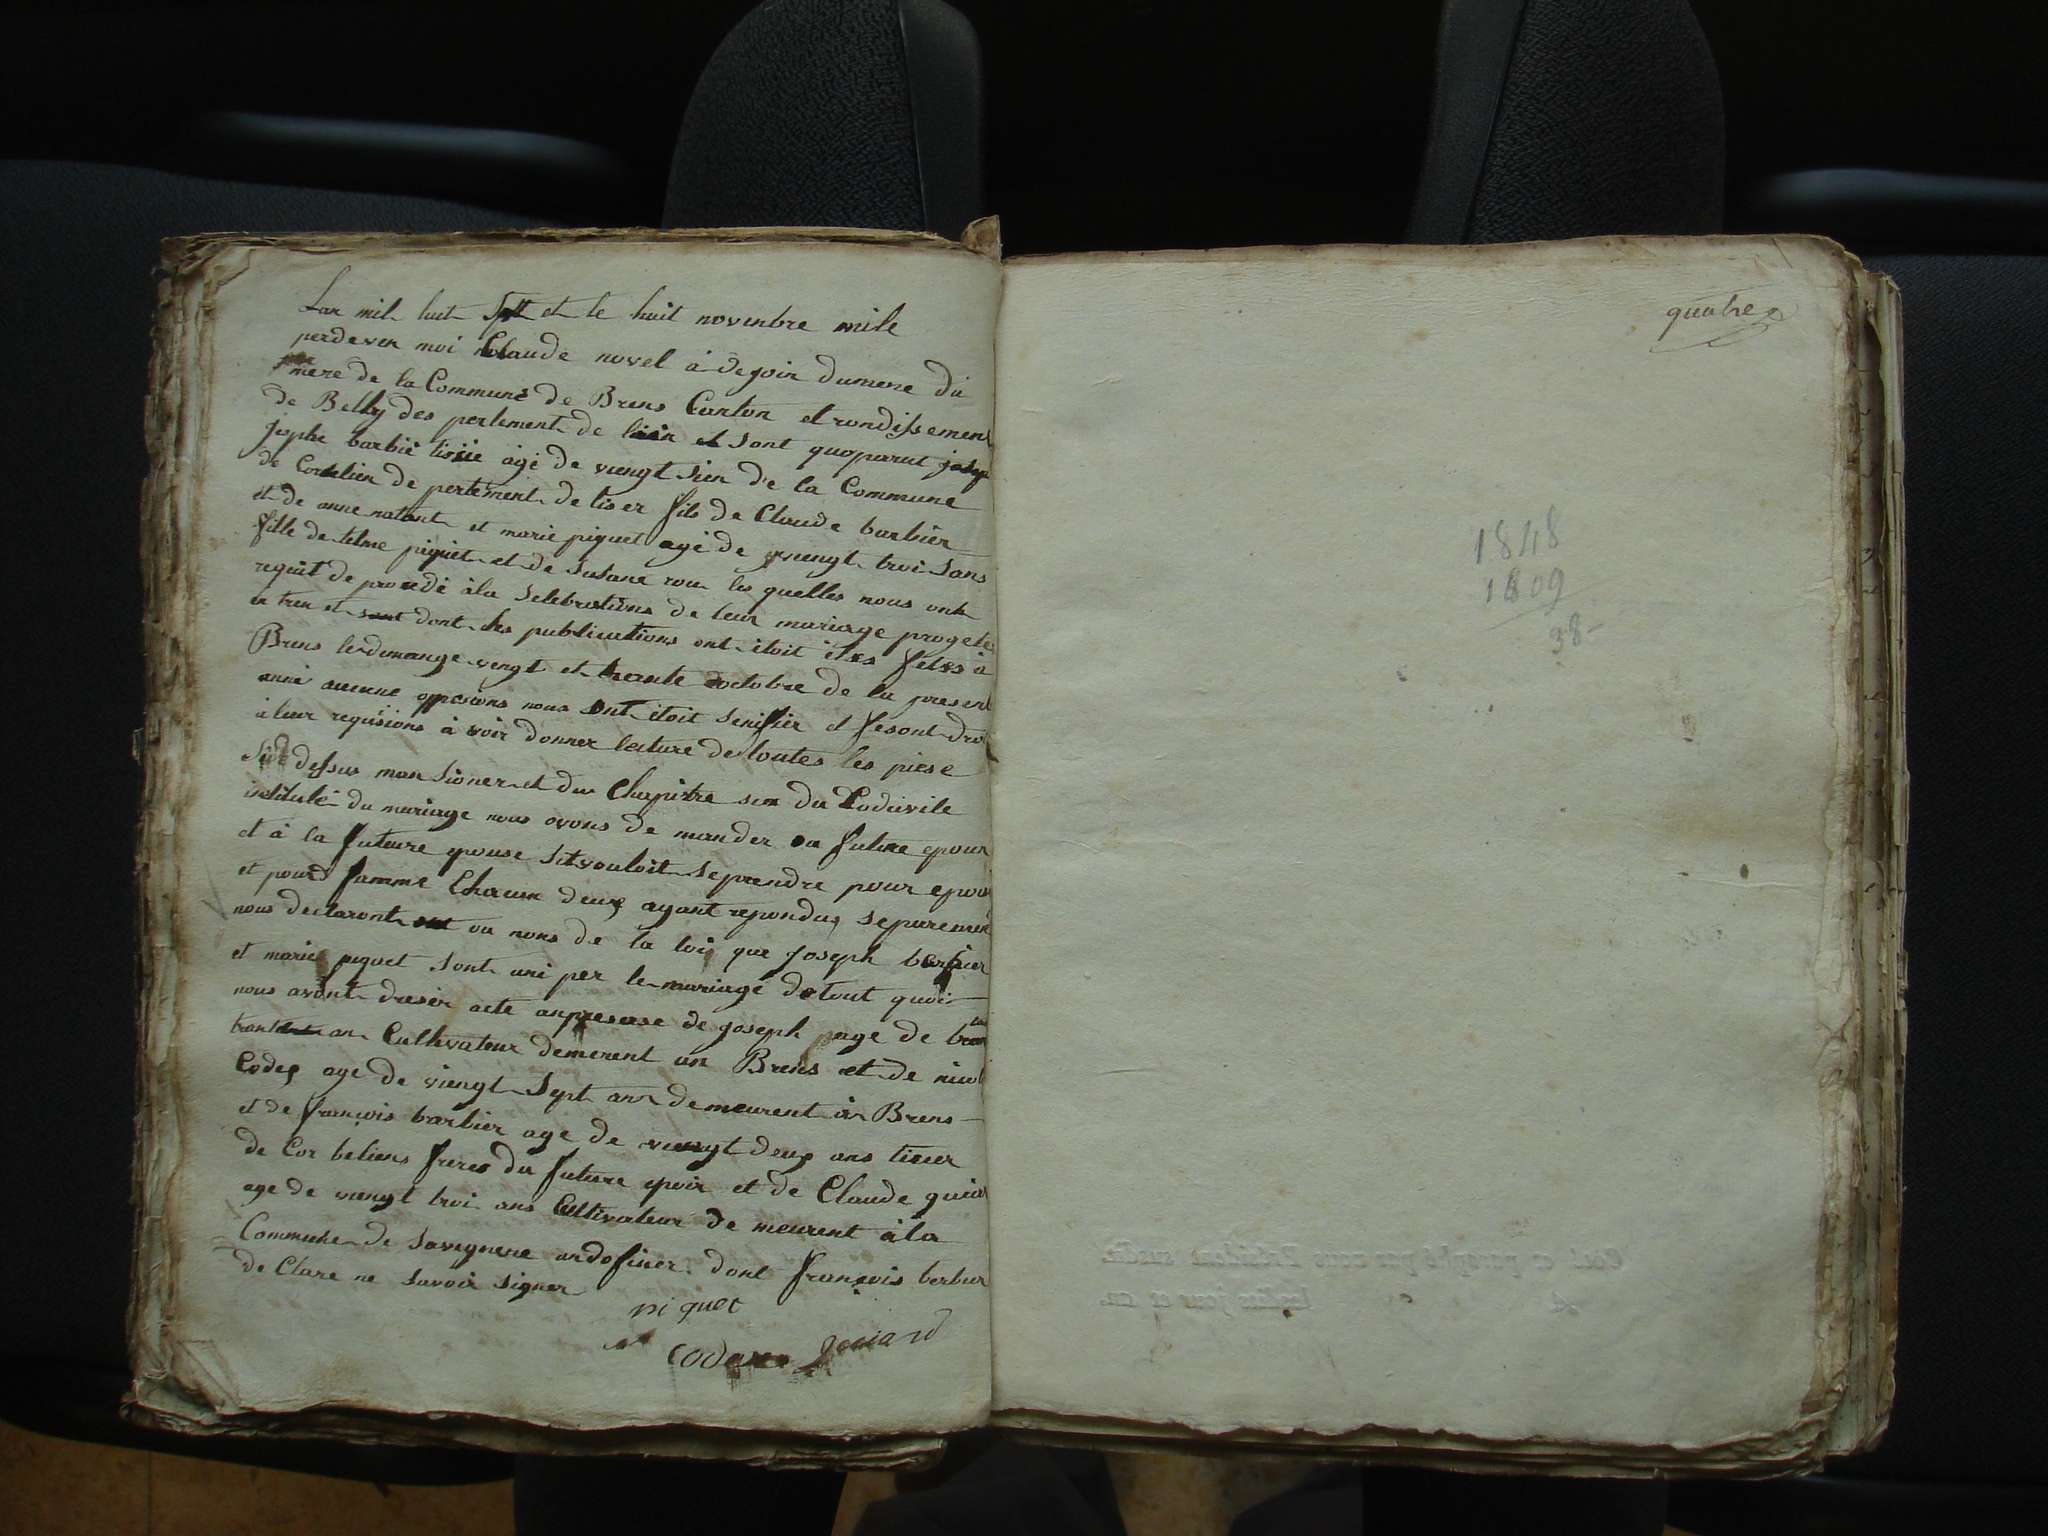 Lan mil huit Sept et le huit novenbre mile
perdeven moi Claude novel à degoin dumere du
mere de la Commune de Brens Canton et rondissemen
de Belly des pertement de lain et sont quoparut josep
jophe barbié tisiie agé de viengt sien de la Commune
de Corbelien de pertement de liser fils de Claude barbier
et de anne natant et marie piquet agé de vuengt troi sans
fille de telme piquet et de susane rou les quelles nous onh
requit de procedé à la selebrations de leur mariage progeté
en treu et dont les publications ont étoit étes fetes à
Brens le dimange vengt et trante octobre de la presen
anné aucune opposions nous ont étoit senifier et fesont dro
à leur requisions à voir donner lecture de toutes les piese
Side dessus mansioner et du Chapitre sen du Codsivile
intitulé du mariage nous avons de mander au future epour
et à la futeure epouse sitvouloit se prendre pour epou
et pour famme Chacun deux ayant repondus separemen
nous declaront ou nons de la loij que joseph barbier
et marie piquet sont uni per le mariage de tout quoi
nous avont dresér acte anpresense de joseph page de
trant an Cultivateur demerent an Brens et de nicol
Codex age de viengt Sept ans demeurent à Brens
et de françois barbier age de vuengt deux ans tisier
de Cor beliens freres du future epoir et de Claude guia
age de viengt troi ans Cultivateur de meurent à la
Commune de savegneue ardofiner dont françois berbier
de Clare ne savoir signer
piquet
codex guiard
quatre
1848
1809
38